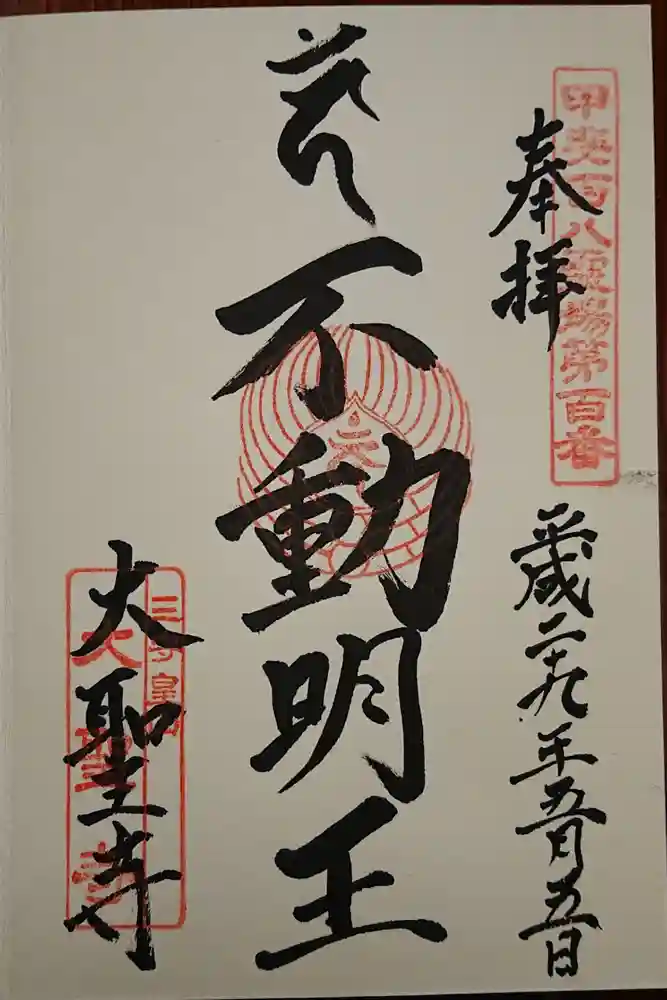 甲斐百八霊場第百番
奉拝
平成二十九年五月五日
不動明王
大聖寺
大聖寺